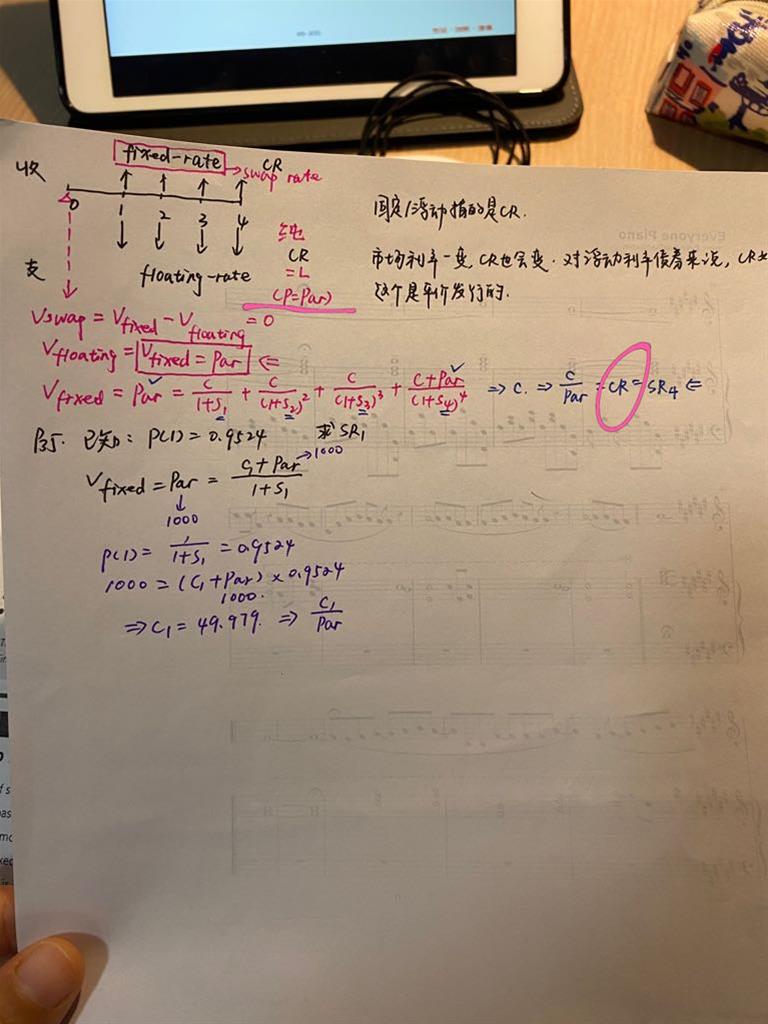 收
fixed-rate → CR
swap rate
0 1 2 3 4
支
floating-rate
CR
= L
(P=Par)
固定/浮动指的是CR.
市场利率一变, CR也会变. 对浮动利率债券来说, CR
这个是平价发行的.
Vswap = Vfixed - Vfloating = 0
Vfloating = Vfixed = Par ⇐
Vfixed = Par = C/(1+S₁) + C/(1+S₂)² + C/(1+S₃)³ + (C+Par)/(1+S₄)⁴ ⇒ C. ⇒ C/Par = CR = SR₄ ⇐
已知: P(1) = 0.9524 求SR₁
Vfixed = Par = (C₁+Par)/(1+S₁) → 1000
↓
1000
P(1) = 1/(1+S₁) = 0.9524
1000 = (C₁+Par) × 0.9524
1000.
⇒ C₁ = 49.979. ⇒ C₁/Par